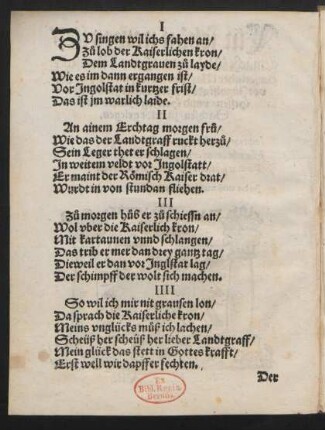 I
ZV singen wil ichs fahen an/
Zů lob der Kaiserlichen kron/
Dem Landtgrauen zů layde/
Wie es im dann ergangen ist/
Vor Ingolstat in kurtzer frist/
Das ist jm warlich laide.
II
An ainem Erchtag morgen frů/
Wie das der Landtgraff ruckt herzů/
Sein Leger thet er schlagen/
In weitem veldt vor Ingolstatt/
Er maint der Römisch Kaiser drat/
Wurdt in von stundan fliehen.
III
Zů morgen hůb er zů schiessn an/
Wol vber die Kaiserlich kron/
Mit kartaunen vnnd schlangen/
Das trib er mer dan drey gantz tag/
Dieweil er dan vor Inglstat lag/
Der schimpff der wolt sich machen.
IIII
So wil ich mir nit grausen lon/
Da sprach die Kaiserliche kron/
Meins vnglücks můß ich lachen/
Scheüß her scheüß her lieber Landtgraff/
Mein glück das stett in Gottes krafft/
Erst well wir dapffer fechten.
Der
Ex
Bibl. Regia
Berolin.